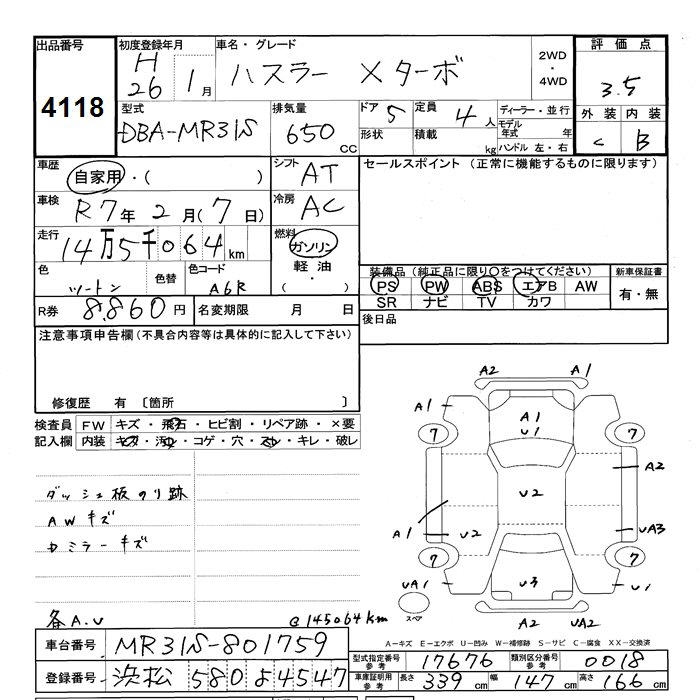 出品番号 初度登録年月 車名・グレード 2WD・4WD 評価点
4118 H26 1月 ハスラー Xターボ 3.5
型式 排気量 ドア 5 定員 4人 ディーラー・並行 外装 内装
DBA-MR31S 650CC 形状 積載 kg モデル年式 年 C B
ハンドル 左・右
車歴 自家用・( ) シフト AT セールスポイント (正常に機能するものに限ります)
車検 R7年2月(7日) 冷房 AC
走行 14万5千064km 燃料 ガソリン
軽油・( )
色 ツートン 色替 色コード A6R
装備品(純正品に限り○をつけてください) 新車保証書
PS PW ABS エアB AW 有・無
SR ナビ TV カワ
R券 8,860円 名変期限 月 日 後日品
注意事項申告欄(不具合内容等は具体的に記入して下さい)
修復歴 有〔箇所 〕
検査員 FW キズ・飛石・ヒビ割・リペア跡・×要
記入欄 内装 キズ・汚レ・コゲ・穴・スレ・キレ・破レ
ダッシュ板のり跡
AWキズ
カミラーキズ
各A.U @145064km
A2 A1
A1 A1 U1
7 7
A2
U2
A1 U2 UA3
7 7
UA1 U3 U1
スペア A2 UA2
A-キズ E-エクボ U-凹み W-補修跡 S-サビ C-腐食 XX-交換済
車台番号 MR31S-801759
型式指定番号 参考 17676 類別区分番号 参考 0018
登録番号 浜松 580 よ4547
車庫証明用 参考 長さ 339cm 幅 147cm 高さ 166cm